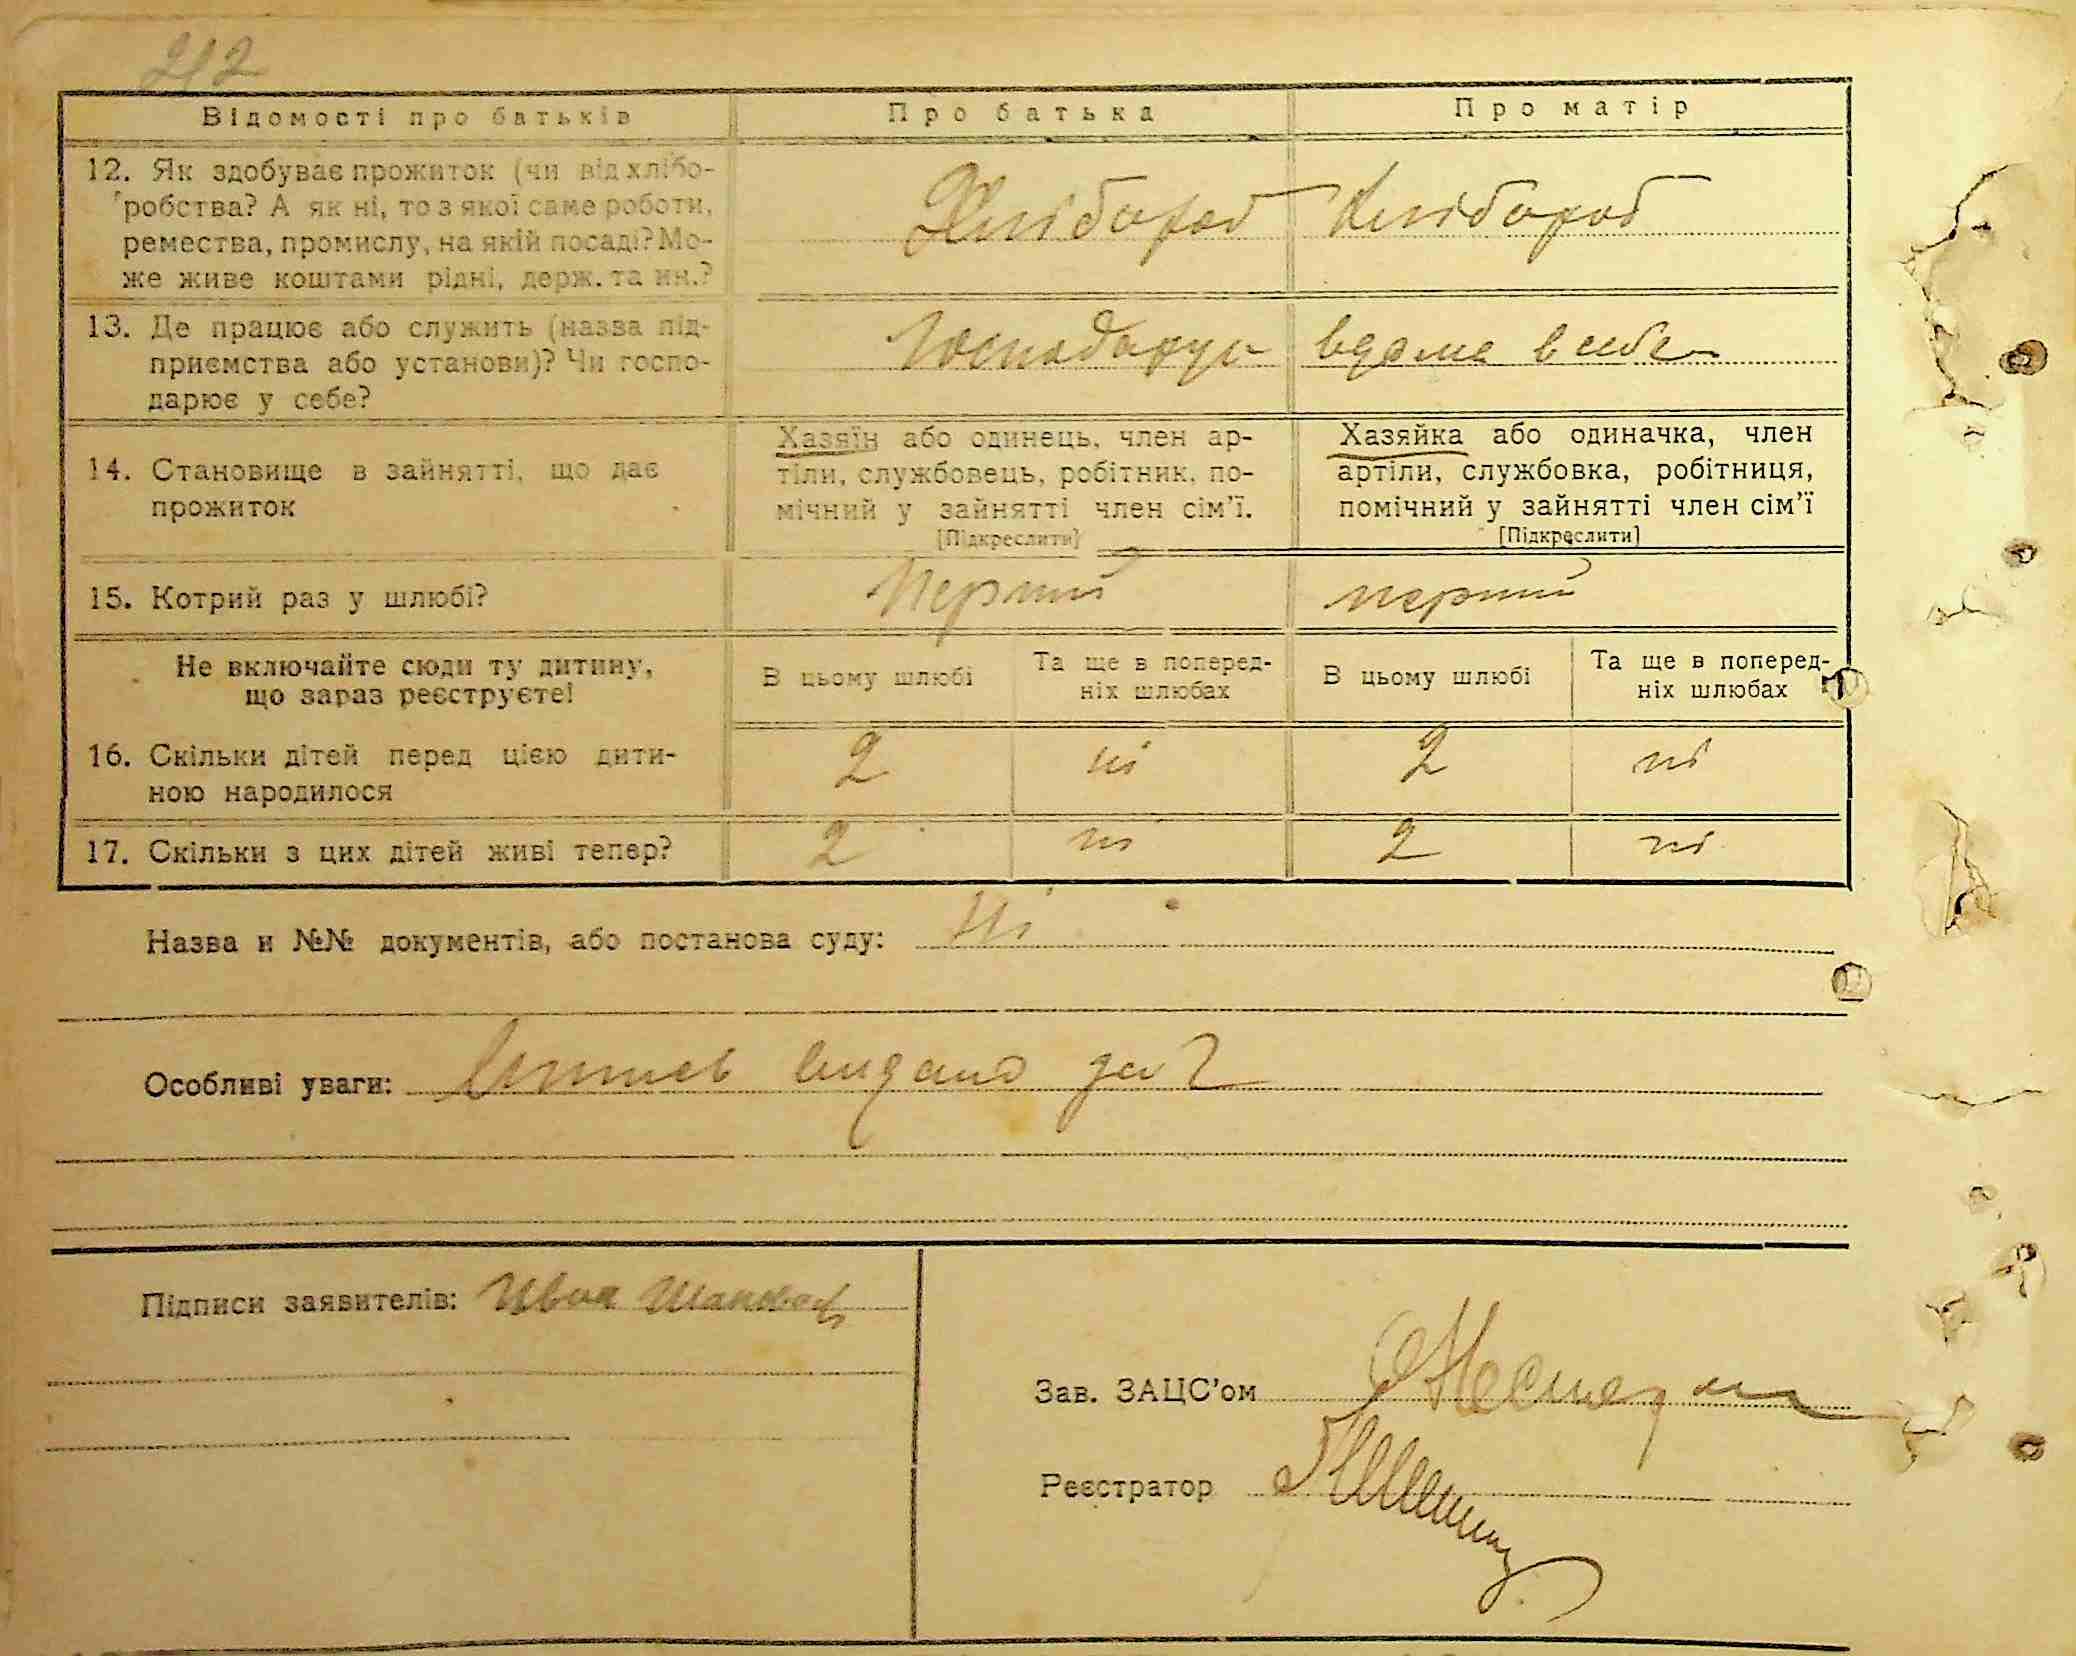 212
Відомості про батьків
Про батька
Про матір
12. Як здобуває прожиток (чи від хлібо-
робства? А як ні, то з якої саме роботи,
ремества, промислу, на якій посаді? Мо-
же живе коштами рідні, держ. та ин.?
Хлібороб
Хлібороб
13. Де працює або служить (назва під-
приємства або установи)? Чи госпо-
дарює у себе?
Господарує
вдома в себе
14. Становище в зайнятті, що дає
прожиток
Хазяїн або одинець, член ар-
тіли, службовець, робітник, по-
мічний у зайнятті член сім'ї.
[Підкреслити]
Хазяйка або одиначка, член
артіли, службовка, робітниця,
помічний у зайнятті член сім'ї
[Підкреслити]
15. Котрий раз у шлюбі?
Перший
перший
Не включайте сюди ту дитину,
що зараз реєструєте!
В цьому шлюбі
Та ще в поперед-
ніх шлюбах
В цьому шлюбі
Та ще в поперед-
ніх шлюбах
16. Скільки дітей перед цією дити-
ною народилося
2 ні 2 ні
17. Скільки з цих дітей живі тепер?
2 ні 2 ні
Назва и №№ документів, або постанова суду: Ні
Особливі уваги: видано
Підписи заявителів:
Зав. ЗАЦС'ом
Реєстратор